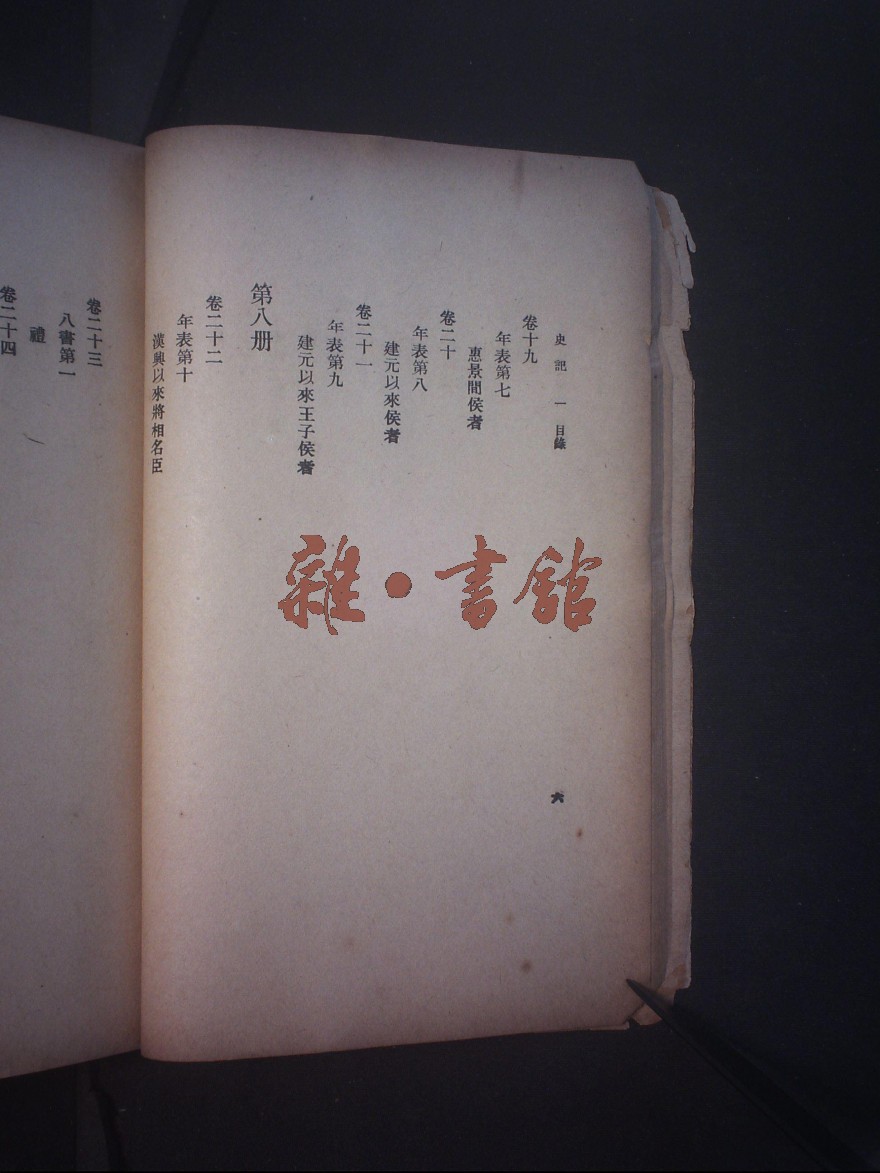 史記 一 目錄
六
卷十九
年表第七
惠景間侯者
卷二十
年表第八
建元以來侯者
卷二十一
年表第九
建元以來王子侯者
第八册
卷二十二
年表第十
漢興以來將相名臣
卷二十三
八書第一
禮
卷二十四
雜·書館